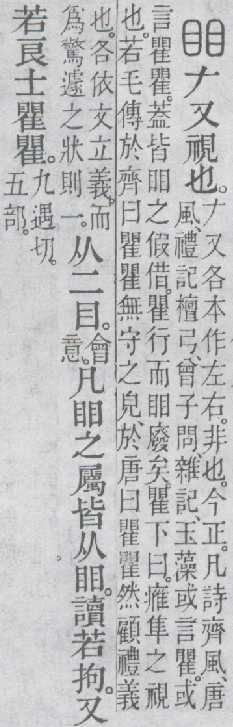 䀠𠂇又視也。
𠂇又各本作左右。非也。今正。凡詩齊風、唐
風、禮記檀弓、曾子問、雜記、玉藻或言瞿。或
言瞿瞿。蓋皆䀠之假借。瞿行而䀠廢矣。瞿下曰。雁隼之視
也。若毛傳於齊曰瞿瞿無守之皃、於唐曰瞿瞿然顧禮義
也。各依文立義。而
爲驚遽之狀則一。
从二目。會意。凡䀠之屬皆从䀠。讀若拘。又
若良士瞿瞿。九遇切。五部。